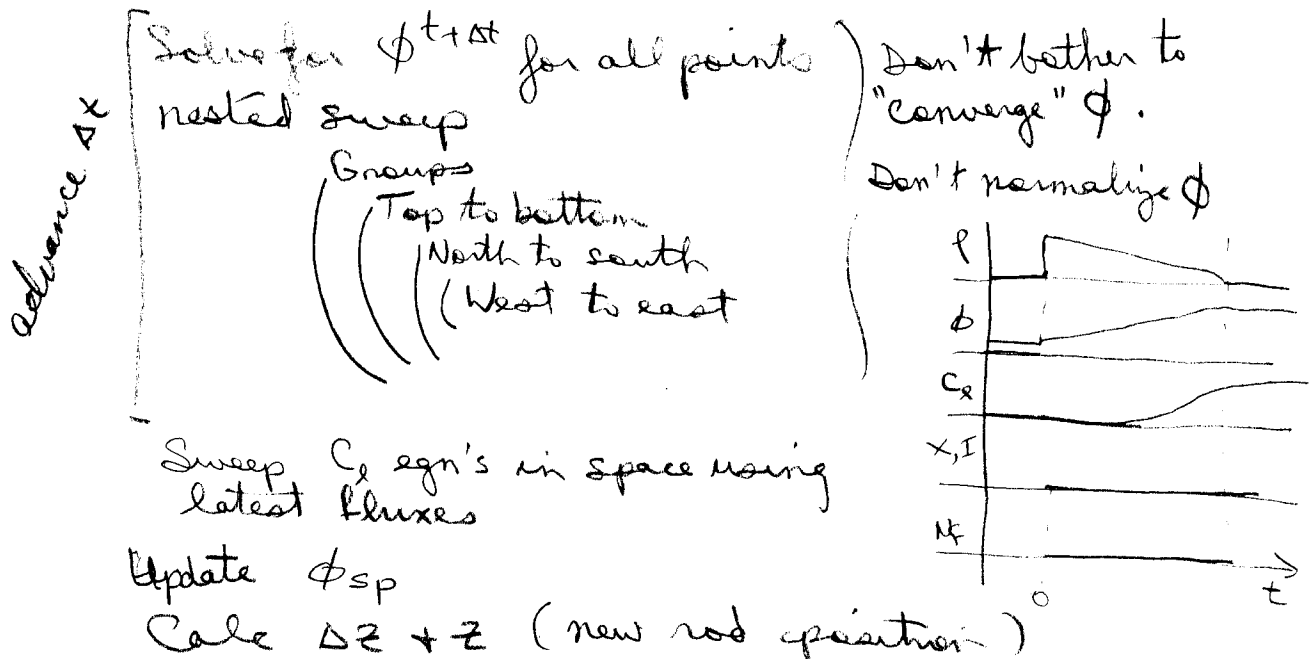 advance Δt
Solve for ϕ^{t+Δt} for all points
nested sweep
Groups
Top to bottom
North to south
West to east
Don't bother to
"converge" ϕ.
Don't normalize ϕ
ρ
ϕ
C_ℓ
X, I
N_f
0
t
Sweep C_ℓ eqn's in space using
latest fluxes
Update ϕ_SP
Calc ΔZ + Z (new rod position)